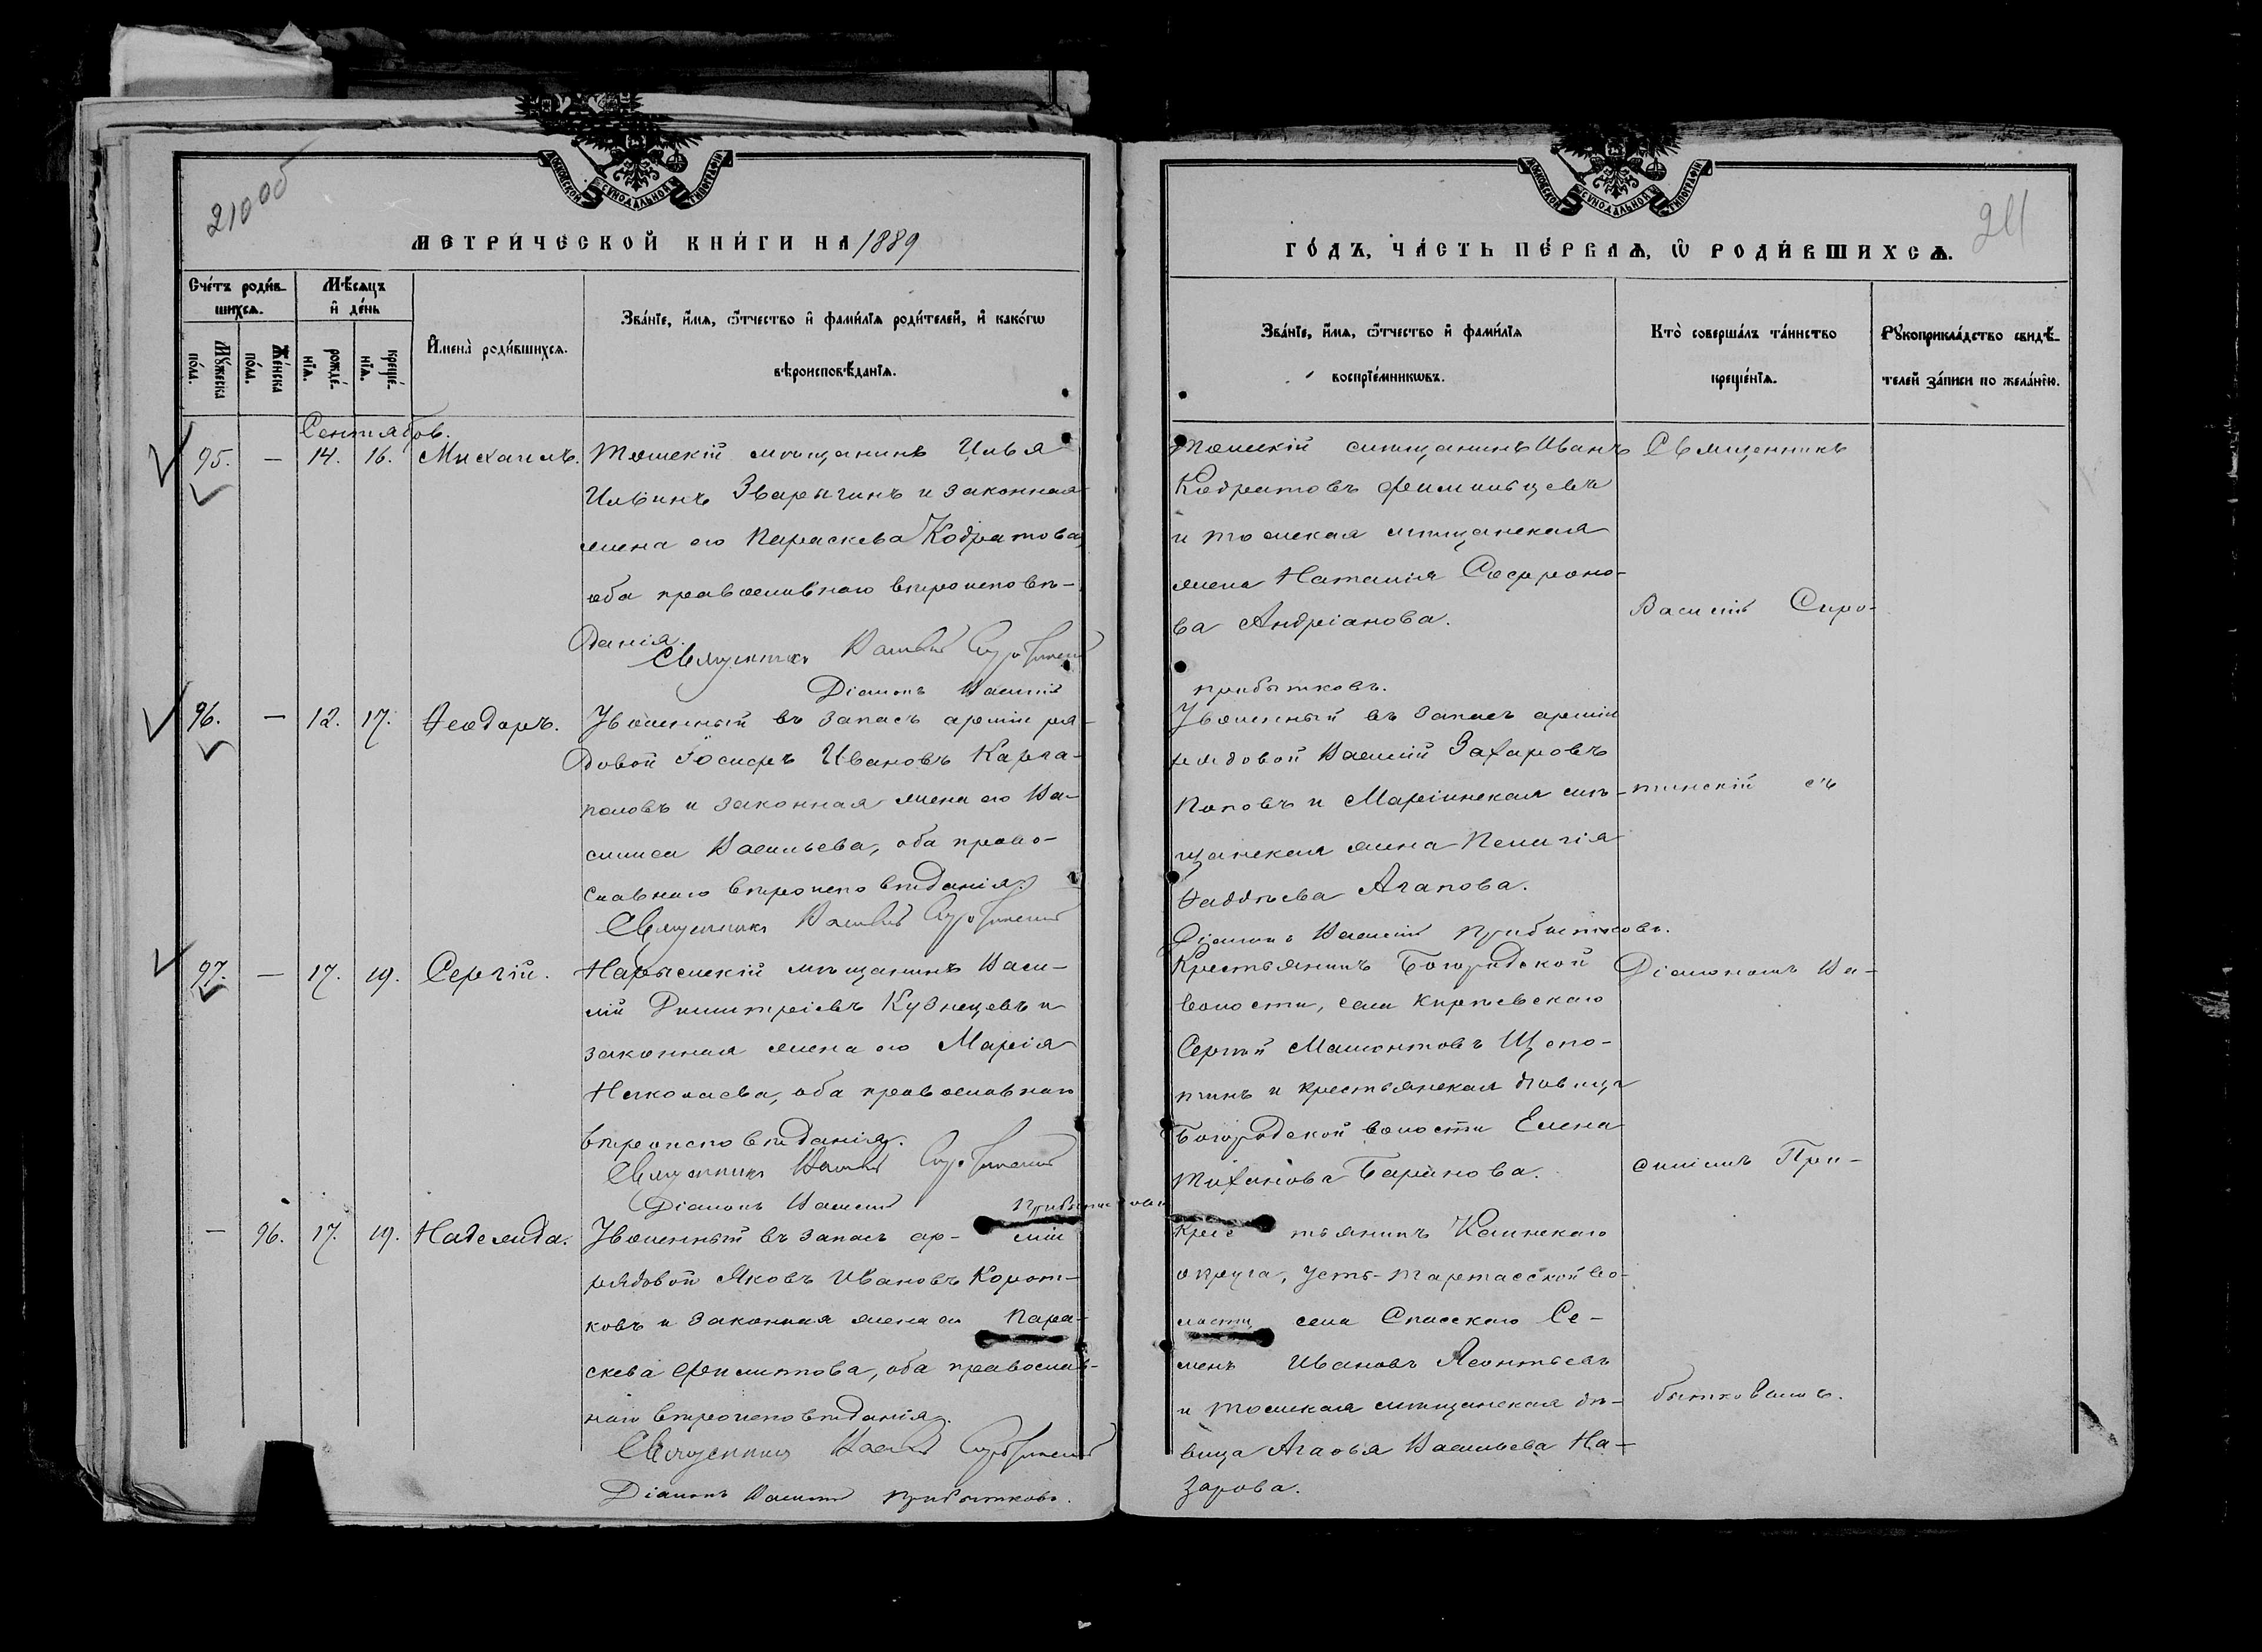 210 об
МОСКОВСКОЙ СѴНОДАЛЬНОЙ ТИПОГРАФІИ
МЕТРИ́ЧЕСКОЙ КНИ́ГИ НА 1889
Сче́тъ роди́в-
шихсѧ.
Мѣ́сѧцъ
и҆ де́нь
Мꙋ́жеска
по́ла.
Же́нска
по́ла.
рожде́-
нїѧ.
креще́-
нїѧ.
И҆мена̀ роди́вшихсѧ.
Зва́нїе, и҆́мѧ, ѻ҆́тчество и҆ фами́лїѧ роди́телей, и҆ како́гѡ
вѣроисповѣ́данїѧ.
Сентябрь.
95. — 14. 16. Михаилъ. Томскій мѣщанинъ Илья
Ильинъ Зварыгинъ и законная
жена его Параскева Кодратова,
оба православнаго вѣроисповѣ-
данія.
Священникъ Василій Сиротинскій
Діаконъ Василій
96. — 12. 17. Ѳеодоръ. Уволенный въ запасъ арміи ря-
довой Іосифъ Ивановъ Карга-
половъ и законная жена его Ва-
силиса Васильева, оба право-
славнаго вѣроисповѣданія.
Священникъ Василій Сиротинскій
97. — 17. 19. Сергій. Нарымскій мѣщанинъ Васи-
лій Димитріевъ Кузнецевъ и
законная жена его Марія
Николаева, оба православнаго
вѣроисповѣданія.
Священникъ Василій Сиротинскій
Діаконъ Василій Прибытковъ
— 96. 17. 19. Надежда. Уволенный въ запасъ ар- міи
рядовой Яковъ Ивановъ Корот-
ковъ и законная жена его Пара-
скева Филиппова, оба православ-
наго вѣроисповѣданія.
Священникъ Василій Сиротинскій
Діаконъ Василій Прибытковъ.
211
МОСКОВСКОЙ СѴНОДАЛЬНОЙ ТИПОГРАФІИ
ГО́ДЪ, ЧА́СТЬ ПЕ́РВАѦ, Ѡ҆ РОДИ́ВШИХСѦ.
Зва́нїе, и҆́мѧ, ѻ҆́тчество и҆ фами́лїѧ
воспрїе́мникѡвъ.
Кто̀ соверша́лъ та́инство
креще́нїѧ.
Рꙋкоприкла́дство свидѣ́-
телей за́писи по жела́нїю.
Томскій мѣщанинъ Иванъ
Кодратовъ Филипьцевъ
и томская мѣщанская
жена Наталія Софроно-
ва Андріанова.
прибытковъ.
Уволенный въ запасъ арміи
рядовой Василій Захаровъ
Поповъ и Маріинская мѣ-
щанская жена Пелагія
Ѳаддѣева Агапова.
Діаконъ Василій Прибытковъ.
Крестьянинъ Богородской
волости, села Кирѣевскаго
Сергѣй Мамонтовъ Щепо-
тинъ и крестьянская дѣвица
Богородской волости Елена
Тиханова Баринова.
Крес тьянинъ Каинскаго
округа, Усть-Тартасской во-
лости, села Спасскаго Се-
менъ Ивановъ Леонтьевъ
и томская мѣщанская дѣ-
вица Агафья Васильева На-
зарова.
Священникъ
Василій Сиро-
тинскій съ
Діакономъ Ва-
силіемъ При-
бытковымъ.